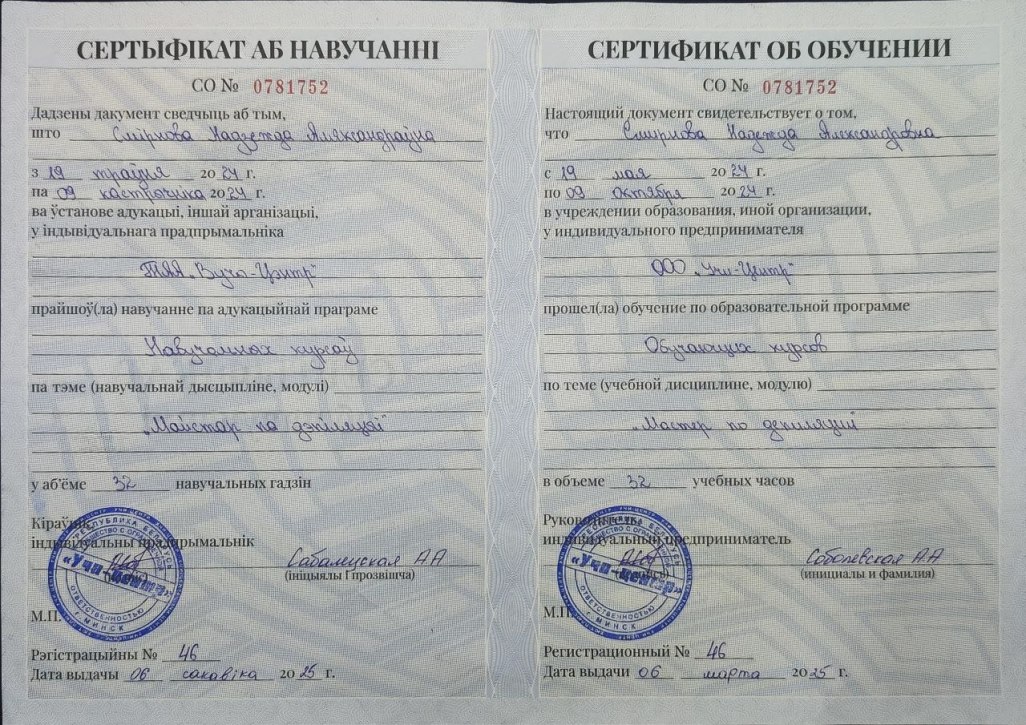 СЕРТЫФІКАТ АБ НАВУЧАННІ
СО № 0781752
Дадзены дакумент сведчыць аб тым,
што Смірнова Надзежда Аляксандраўна
з 19 траўня 20 24 г.
па 09 кастрычніка 20 24 г.
ва ўстанове адукацыі, іншай арганізацыі,
у індывідуальнага прадпрымальніка
ТАА „Вучы-Цэнтр"
прайшоў(ла) навучанне па адукацыйнай праграме
Навучальных курсаў
па тэме (навучальнай дысцыпліне, модулі)
„Майстар па дэпіляцыі"
у аб'ёме 32 навучальных гадзін
Кіраўнік,
індывідуальны прадпрымальнік
Сабалеўская А А
(ініцыялы і прозвішча)
М.П.
«Учи-центр»
РЕСПУБЛИКА БЕЛАРУСЬ
ОТВЕТСТВЕННОСТЬЮ
г. МИНСК
Рэгістрацыйны № 46
Дата выдачы 06 сакавіка 20 25 г.
СЕРТИФИКАТ ОБ ОБУЧЕНИИ
СО № 0781752
Настоящий документ свидетельствует о том,
что Смирнова Надежда Александровна
с 19 мая 20 24 г.
по 09 октября 20 24 г.
в учреждении образования, иной организации,
у индивидуального предпринимателя
ООО „Учи-Центр"
прошел(ла) обучение по образовательной программе
Обучающих курсов
по теме (учебной дисциплине, модулю)
„Мастер по депиляции"
в объеме 32 учебных часов
Руководитель,
индивидуальный предприниматель
Соболевская А А
(инициалы и фамилия)
М.П.
«Учи-центр»
РЕСПУБЛИКА БЕЛАРУСЬ
ОТВЕТСТВЕННОСТЬЮ
г. МИНСК
Регистрационный № 46
Дата выдачи 06 марта 20 25 г.